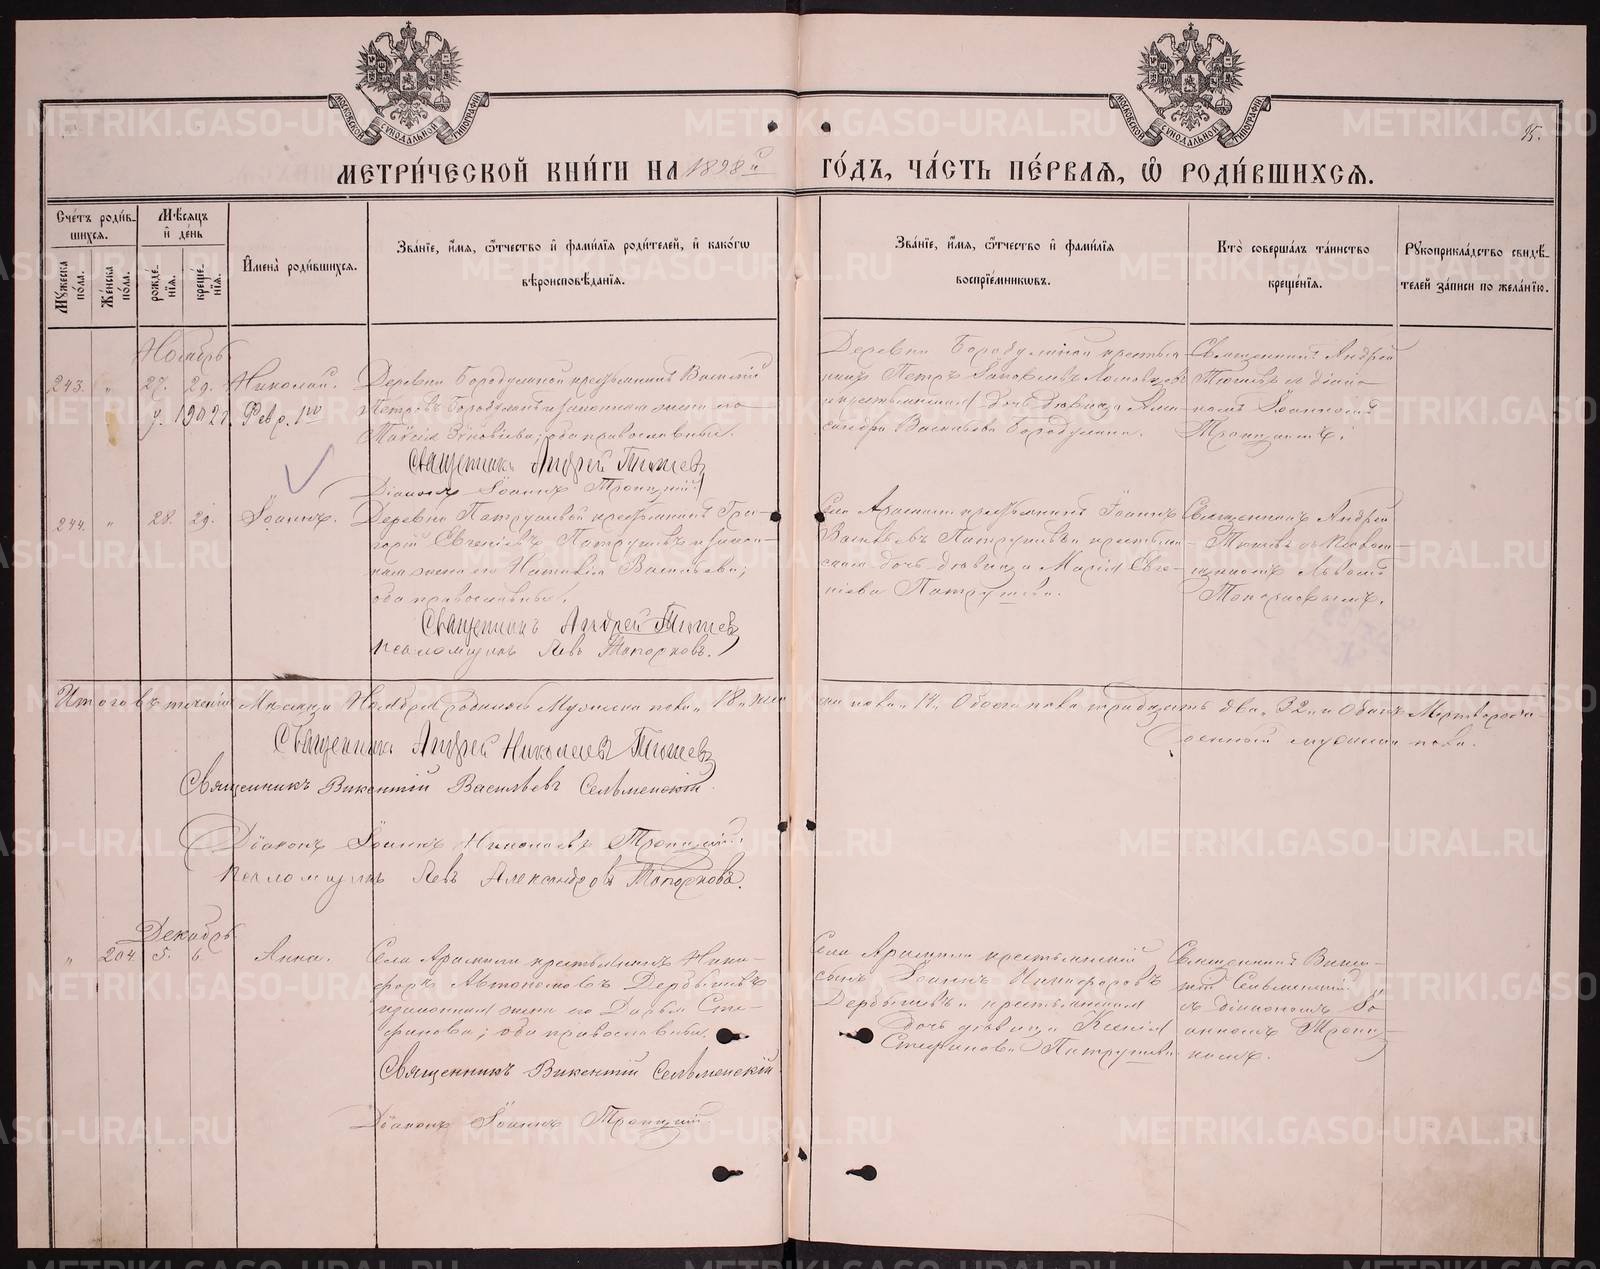 МОСКОВСКОЙ СѴНОДАЛЬНОЙ ТИПОГРАФІИ
МОСКОВСКОЙ СѴНОДАЛЬНОЙ ТИПОГРАФІИ
95.
МЕТРИ́ЧЕСКОЙ КНИ́ГИ НА 1898 й ГО́ДЪ, ЧА́СТЬ ПЕ́РВАѦ, Ѡ҆ РОДИ́ВШИХСѦ.
Сче́тъ роди́в-
шихсѧ.
Мꙋ́жеска по́ла.
Же́нска по́ла.
Мѣ́сѧцъ
и҆ де́нь
рожде́-
нїѧ.
креще́-
нїѧ.
И҆мена̀ роди́вшихсѧ.
Зва́нїе, и҆́мѧ, ѻ҆́тчество и҆ фами́лїѧ роди́телей, и҆ како́гѡ
вѣроисповѣ́данїѧ.
Зва́нїе, и҆́мѧ, ѻ҆́тчество и҆ фами́лїѧ
воспрїе́мникѡвъ.
Кто̀ соверша́лъ та́инство
креще́нїѧ.
Рꙋкоприкла́дство свидѣ́-
телей за́писи по жела́нїю.
Ноябрь
243. " 27. 29. Николай.
Деревни Бородулиной крестьянинъ Василій
Петровъ Бородулинъ и законная жена его
Таисія Зиновіева; оба православные.
Священникъ Андрей
Діаконъ Іоаннъ Троицкій
у. 1902 г. Февр. 1го
Деревни Бородулиной крестья-
нинъ Петръ
и крестьянская дочь дѣвица Алек-
сандра Васильева Бородулина.
Священникъ Андрей
съ діако-
номъ Іоанномъ
Троицкимъ.
244. " 28. 29. Іоаннъ.
Деревни Патрушевой крестьянинъ Гри-
горій Евгеніевъ Патрушевъ и закон-
ная жена его Наталія Васильева;
оба православные.
Священникъ Андрей
Псаломщикъ Левъ Топорковъ.
Села Арамили крестьянинъ Іоаннъ
Васильевъ Патрушевъ и крестьян-
ская дочь дѣвица Марія Евге-
ніева Патрушева.
Священникъ Андрей
съ псалом-
щикомъ Львомъ
Топорковымъ.
Итого въ теченіи Мѣсяца Ноября родилось Мужеска пола "18" жен
ска пола "14" Обоего пола тридцать два "32" и Одинъ Мертворож-
денный мужска пола.
Священникъ Андрей Николаевъ
Священникъ Викентій Васильевъ Сельменскій
Діаконъ Іоаннъ Николаевъ Троицкій
Псаломщикъ Левъ Александровъ Топорковъ.
Декабрь
" 204 5. 6 Анна.
Села Арамили крестьянинъ Ники-
форъ Автономовъ Дербышевъ
и законная жена его Дарья Сте-
фанова; оба православные.
Священникъ Викентій Сельменскій
Діаконъ Іоаннъ Троицкій
Села Арамили крестьянскій
сынъ Іоаннъ Никифоровъ
Дербышевъ и крестьянская
дочь дѣвица Ксенія
Стефанова Патрушева
Священникъ Викен-
тій Сельменскій
съ діакономъ Іо-
анномъ Троиц-
кимъ.
METRIKI.GASO-URAL.RU